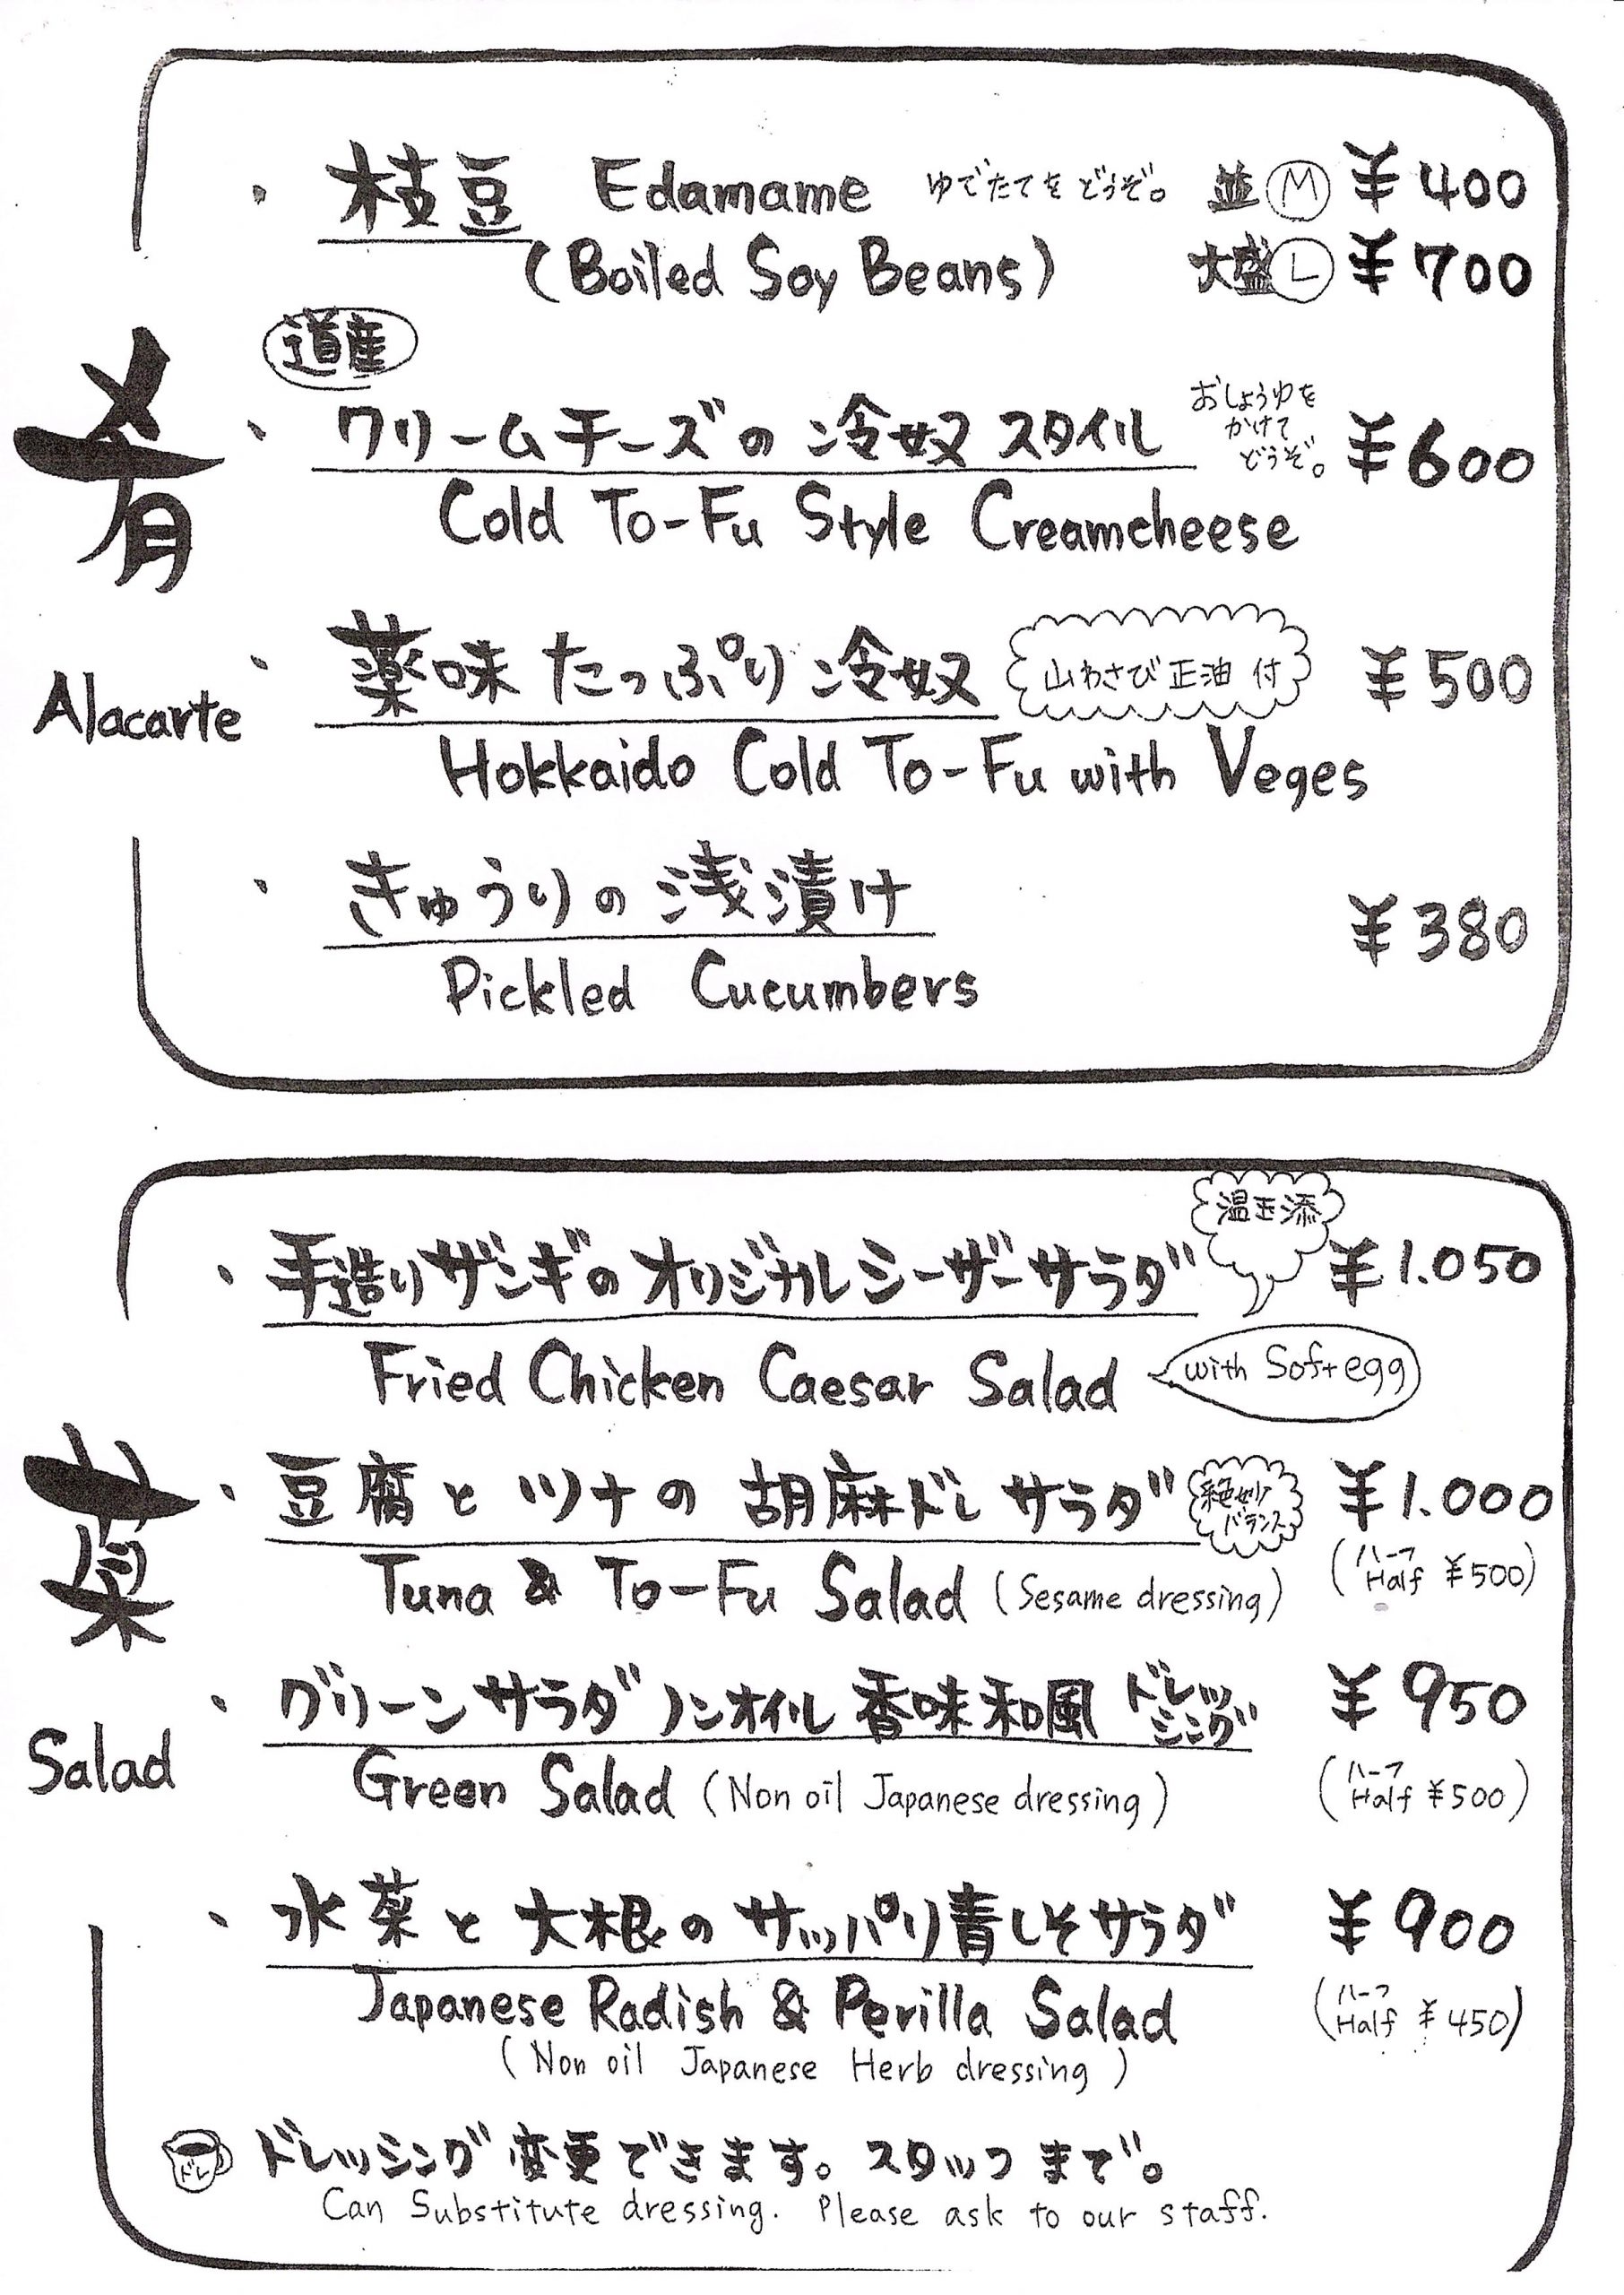 肴
Alacarte
・枝豆 Edamame ゆでたてをどうぞ。 並 Ⓜ ¥400
(Boiled Soy Beans) 大盛 Ⓛ ¥700
道産
・クリームチーズの冷奴スタイル おしょうゆを ¥600
かけて
どうぞ。
Cold To-Fu Style Creamcheese
・薬味たっぷり冷奴 山わさび正油付 ¥500
Hokkaido Cold To-Fu with Veges
・きゅうりの浅漬け ¥380
Pickled Cucumbers
菜
Salad
・手造りザンギのオリジナルシーザーサラダ 温玉添 ¥1.050
Fried Chicken Caesar Salad with Soft egg
・豆腐とツナの胡麻ドレサラダ 絶妙バランス ¥1.000
Tuna & To-Fu Salad (Sesame dressing) (ハーフ Half ¥500)
・グリーンサラダノンオイル香味和風ドレッシング ¥950
Green Salad (Non oil Japanese dressing) (ハーフ Half ¥500)
・水菜と大根のサッパリ青しそサラダ ¥900
Japanese Radish & Perilla Salad (ハーフ Half ¥450)
(Non oil Japanese Herb dressing)
ドレ ドレッシング変更できます。スタッフまで。
Can Substitute dressing. Please ask to our staff.